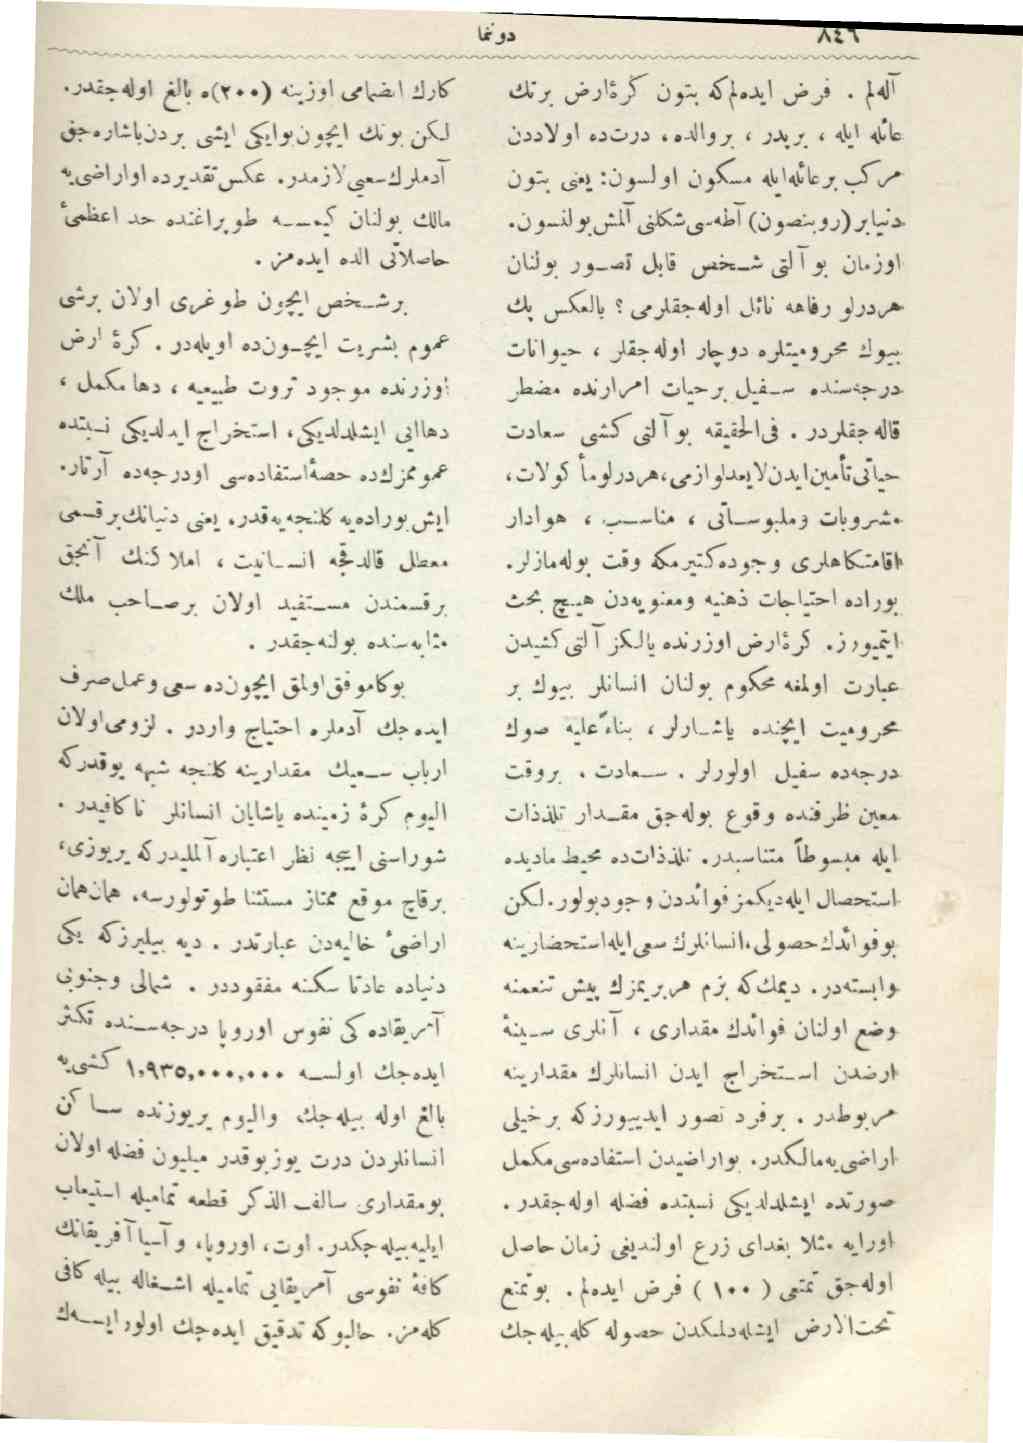 ٨٤٦
دونما
آله‌لم . فرض ایده‌لم‌كه بتون كرۀارض برتك
عائله ایله ، بریدر ، بروالده، درت‌ده اولاددن
مركب برعائله‌ایله مسكون اولسون: یعنی بتون
دنیابر(روبنصون) آطه‌سی‌شكلنی آلمش‌بولنسون.
اوزمان بو آلتی شخص قابل تصور بولنان
هردرلو رفاهه نائل اوله‌جقلرمی ؟ بالعكس پك
بیوك محرومیتلره دوچار اوله‌جقلر ، حیوانات
درجه‌سنده سفیل برحیات امرارنده مضطر
قاله‌جقلردر . فی‌الحقیقه بو آلتی كشی سعادت
حیاتی‌تأمین‌ایدن‌لایعدلوازمی،هردرلومأكولات،
مشروبات وملبوساتی ، مناسب ، هوادار
اقامتكاهلری وجوده‌كتیرمكه وقت بوله‌مازلر.
بوراده احتیاجات ذهنیه ومعنویه‌دن هیچ بحث
ایتمیورز. كرۀارض اوزرنده یالكز آلتی‌كشیدن
عبارت اولمغه محكوم بولنان انسانلر بیوك بر
محرومیت ایچنده یاشارلر ، بناءً‌علیه صوك
درجه‌ده سفیل اولورلر . سعادت ، بروقت
معین ظرفنده وقوع بوله‌جق مقدار تلذذات
ایله مبسوطاً متناسبدر. تلذذات‌ده محیط مادیده
استحصال ایله‌دیكمز فوائددن وجودبولور.لكن
بوفوائدك‌حصولی،انسانلرك سعی‌ایله‌استحضارینه
وابسته‌در. دیمك‌كه بزم هربریمزك پیش تنعمنه
وضع اولنان فوائدك مقداری ، آنلری سینۀ
ارضدن استخراج ایدن انسانلرك مقدارینه
مربوطدر . برفرد تصور ایدییورزكه برخیلی
اراضی‌یه‌مالكدر. بواراضیدن استفاده‌سی‌مكمل
صورتده ایشلدیكی نسبتده فضله اوله‌جقدر .
اورایه مثلا بغدای زرع اولندیغی زمان حاصل
اوله‌جق تمتعی ( ١٠٠ ) فرض ایده‌لم . بوتمتع
تحت‌الارض ایشله‌دلمكدن حصوله كله‌بیله‌جك
كارك انضمامی اوزینه (٢٠٠)ه بالغ اوله‌جقدر.
لكن بونك ایچون‌بوایكی ایشی بردن‌باشاره‌جق
آدملرك‌سعیی‌لازمدر. عكس‌تقدیرده اواراضی‌یه
مالك بولنان كیمسه طوپراغنده حد اعظمیٔ
حاصلاتی الده ایده‌مز .
برشخص ایچون طوغری اولان برشی
عموم بشریت ایچون‌ده اویله‌در . كرۀ ارض
اوزرنده موجود ثروت طبیعیه ، دها مكمل ،
دهاایی ایشلدلدیكی، استخراج ایدلدیكی نسبتده
عموممزك‌ده حصۀاستفاده‌سی اودرجه‌ده آرتار.
ایش‌بوراده‌یه كلنجه‌یه‌قدر، یعنی دنیانك‌برقسمی
معطل قالدقجه انسانیت ، املاكنك آنجق
برقسمندن مستفید اولان برصاحب ملك
مثابه‌سنده بولنه‌جقدر .
بوكاموفق‌اولمق ایچون‌ده سعی وعمل‌صرف
ایده‌جك آدملره احتیاج واردر . لزومی‌اولان
ارباب سعیك مقدارینه كلنجه شبهه یوقدركه
الیوم كرۀ زمینده یاشایان انسانلر ناكافیدر .
شوراسنی اییجه نظر اعتباره‌آلملیدركه یریوزی،
برقاچ موقع ممتاز مستثنا طوتولورسه، همان‌همان
اراضیٔ خالیه‌دن عبارتدر . دیه بیلیرزكه یكی
دنیاده عادتا سكنه مفقوددر . شمالی وجنوبی
آمریقاده‌كی نفوس اوروپا درجه‌سنده تكثر
ایده‌جك اولسه ١,٩٣٥,٠٠٠,٠٠٠ كشی‌یه
بالغ اوله بیله‌جك، والیوم یریوزنده ساكن
انسانلردن درت یوزبوقدر میلیون فضله‌اولان
بومقداری سالف الذكر قطعه تمامیله استیعاب
ایلیه‌بیله‌جكدر. اوت، اوروپا، و آسیاآفریقانك
كافۀ نفوسی آمریقایی تمامیله اشغاله بیله‌كافی
كله‌مز. حالبوكه تدقیق ایده‌جك اولورایسه‌ك